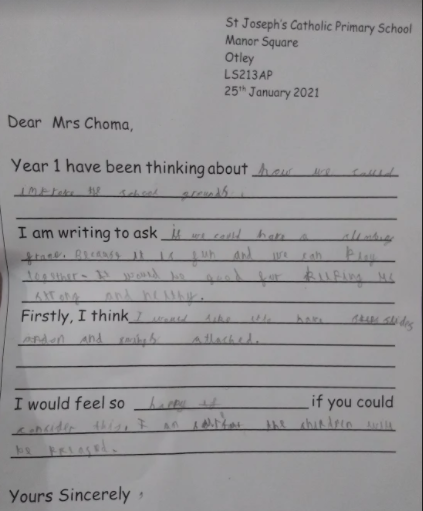 St Joseph's Catholic Primary School
Manor Square
Otley
LS213AP
25th January 2021
Dear Mrs Choma,
Year 1 have been thinking about how we could
improve the school grounds.
I am writing to ask is we could have a climbing
frame. Because it is fun and we can play
together. It would be good for keeping us
strong and helthy.
Firstly, I think I would like the have
and attached.
I would feel so happy if if you could
consider this, I am the children will
be pleased.
Yours Sincerely,